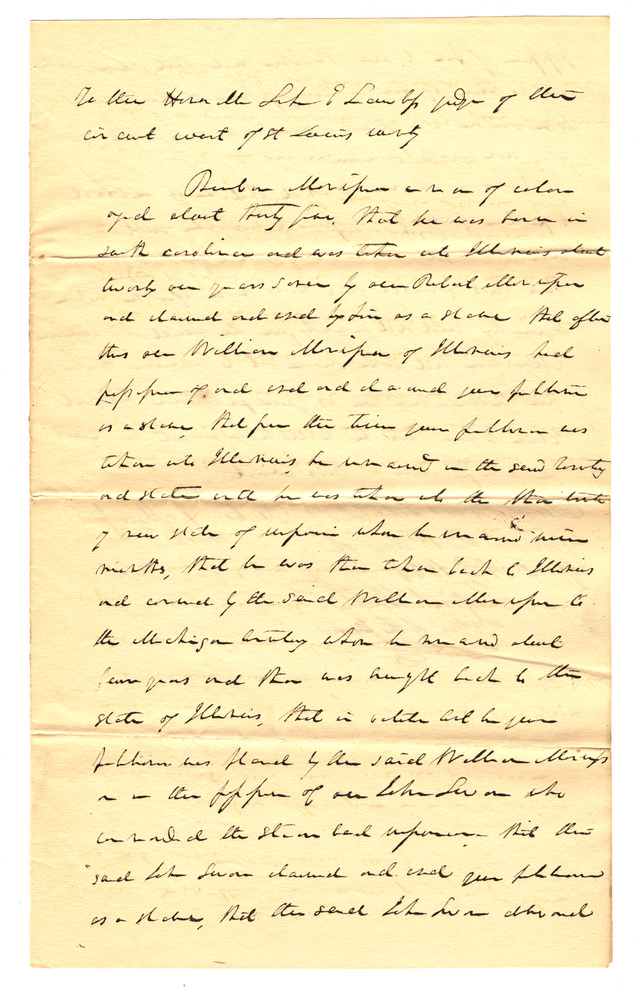 To the Honorable Luke E Lawless judge of the
circuit court of St Louis county
Reuben Morrison a man of color
aged about thirty five, that he was born in
south carolina and was taken into Illinois about
twenty one years since by one Robert Morrison
and claimed and used by him as a slave that after
this one William Morrison of Illinois had
possession of and used and claimed your petitioner
as a slave, that from the time your petitioner was
taken into Illinois, he remained in the said territory
and state until he was taken into the then territory
now state of missouri when he remained
months, that he was then taken back to Illinois
and carried by the said William Morrison to
the Michigan territory where he remained about
four years and then was brought back to the
state of Illinois, that in your
petitioner was placed by the said William Morriss
on in the possession of one John Simon who
commanded the steam boat that the
said John claimed and used your petitioner
as a slave, that the said John